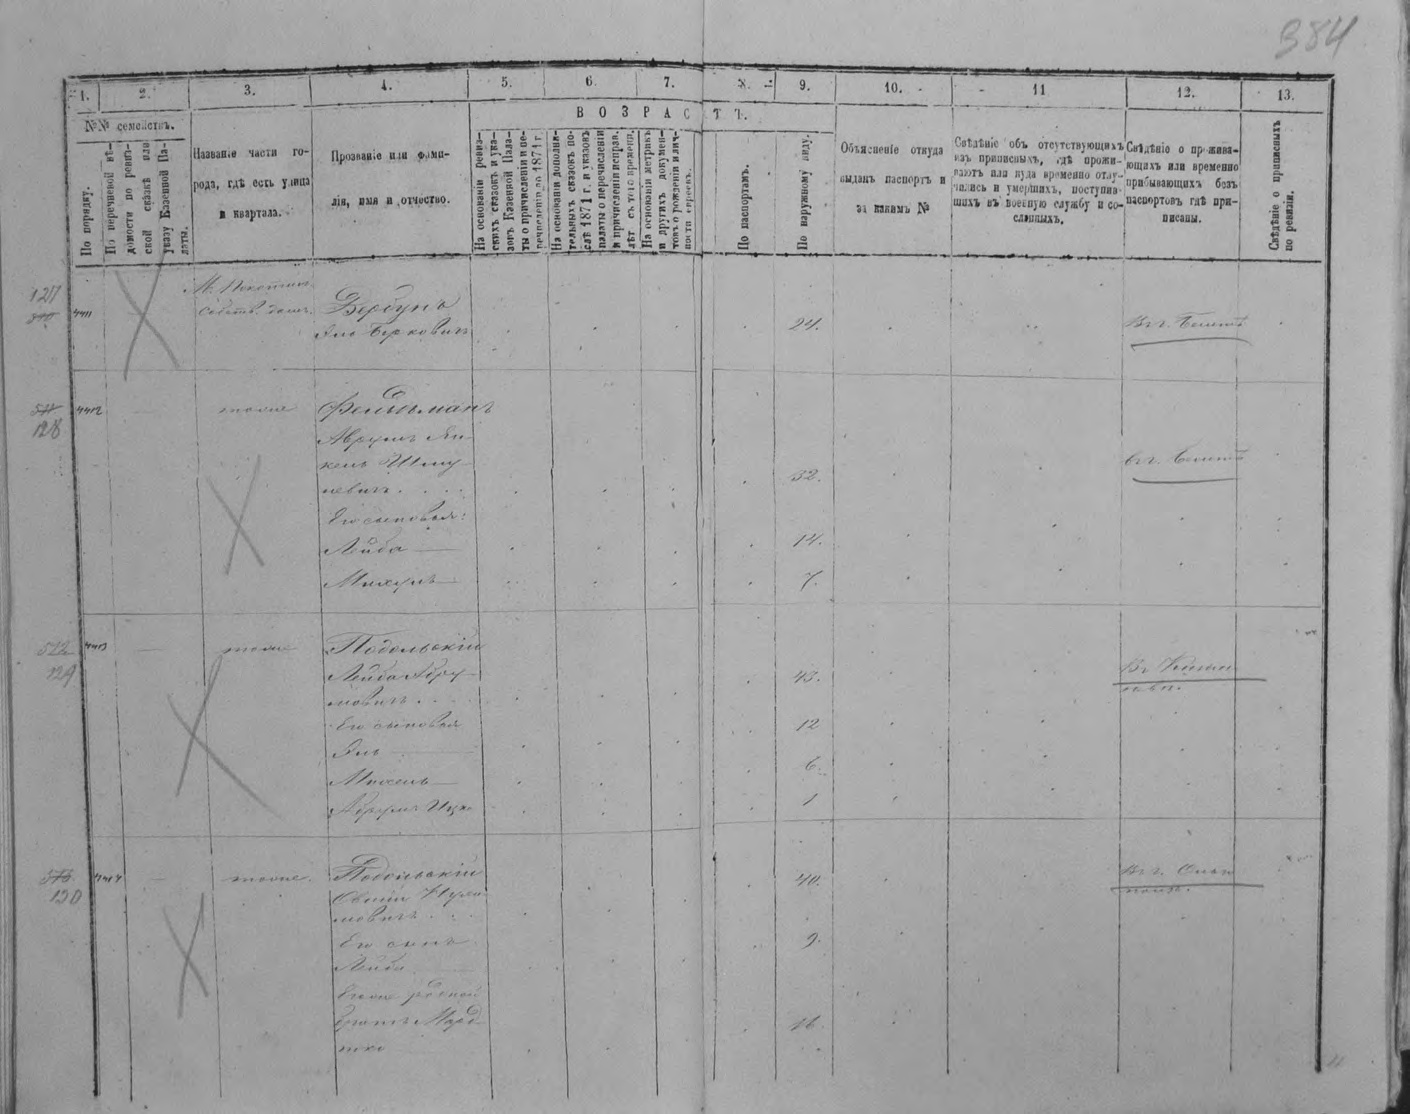 384
1.
2.
3.
4.
5.
6.
7.
8.
9.
10.
11
12.
13.
№№ семействъ.
ВОЗРАСТЪ.
По порядку.
По перечневой вѣ-
домости по ревиз-
ской сказкѣ или
указу Казенной Па-
латы.
Названіе части го-
рода, гдѣ есть улица
и квартала.
Прозваніе или фами-
лія, имя и отчество.
На основаніи ревиз-
скихъ сказокъ и ука-
зовъ Казенной Пала-
ты о причисленіи и пе-
речисленіи до 1871 г.
На основаніи дополни-
тельныхъ сказокъ по-
слѣ 1871 г. и указовъ
палаты о перечисленіи
и причисленіи исправ.
лѣтъ съ того времени.
На основаніи метрикъ
и другихъ докумен-
товъ о рожденіи и лич-
ности евреевъ.
По паспортамъ.
По наружному виду.
Объясненіе откуда
выданъ паспортъ и
за какимъ №
Свѣдѣніе объ отсутствующихъ
изъ приписныхъ, гдѣ прожи-
ваютъ или куда временно отлу-
чились и умершихъ, поступив-
шихъ въ военную службу и со-
сланныхъ.
Свѣдѣніе о прожива-
ющихъ или временно
прибывающихъ безъ
паспортовъ гдѣ при-
писаны.
Свѣдѣніе о приписныхъ
по ревизіи.
127
4411
М.
Собств. домъ.
Бербунъ
Эль Берковичъ
24.
Въ г.
4412
128
тоже
Фельдманъ
Аврумъ Ян-
кель Шму-
левичъ
32.
въ г.
Его сыновья:
Лейба
14.
Михуль
7.
512
4413
129
тоже
Подольскій
Лейба Абру-
мовичъ
43.
Въ
Его сыновья
12
Эль
6.
Михель
1
Абрумъ Ицко
4414
130
тоже.
Подольскій
40.
Въ г.
мовичъ
Его сынъ
9.
Лейба
Его же родной
братъ Морд-
16.
тко